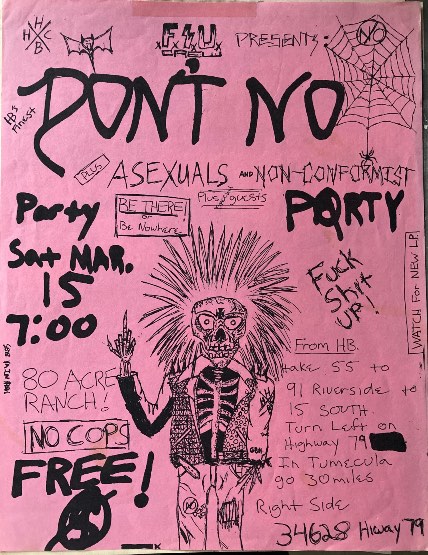 H H C B
F.S.U. CREW
PRESENTS:
NO
HB's Finest
DON'T NO
PLUS
ASEXUALS AND NON-CONFORMIST
Plus guests
Party
BE THERE!
or
Be Nowhere
PARTY
Sat MAR.
15
7:00
Fuck
Shit
UP!
WATCH FOR NEW LP.
80 ACRE
RANCH!
NO COPS
FREE!
$
GBH
NO
From HB.
take 55 to
91 Riverside to
15 SOUTH
Turn Left on
Highway 79
In Tumecula
go 30 miles
Right Side
34628 Hiway 79